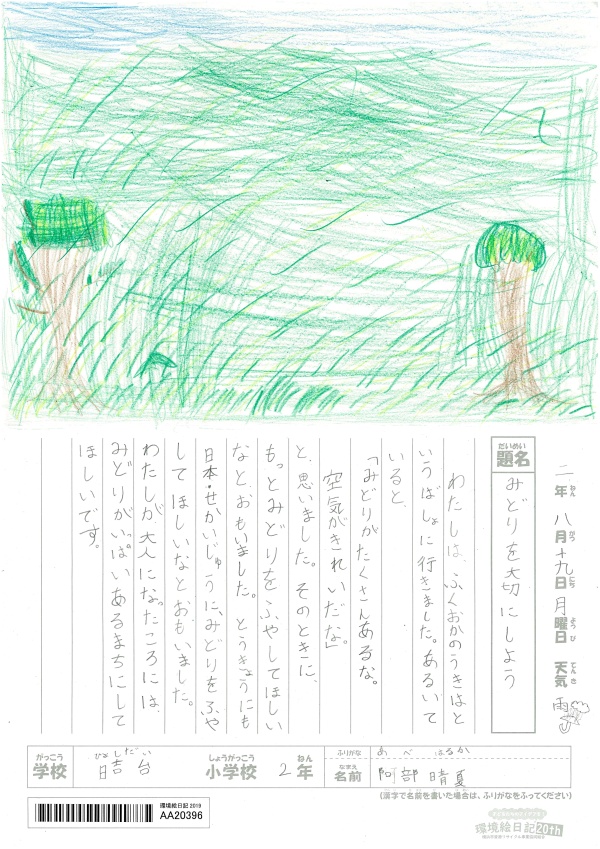 二年 八月十九日 月曜日 天気 雨
ねん がつ にち ようび てんき
題名 みどりを大切にしよう
だいめい
わたしは、ふくおかのうきはと
いうばしょに行きました。あるいて
いると、
「みどりがたくさんあるな。
空気がきれいだな。」
と、思いました。そのときに、
もっとみどりをふやしてほしい
なと、おもいました。とうきょうにも
日本・せかいじゅうにみどりをふや
してほしいなとおもいました。
わたしが、大人になったころには、
みどりがいっぱいあるまちにして
ほしいです。
がっこう ひよしだい しょうがっこう ねん ふりがな あべ はるか
学校 日吉台 小学校 2年 なまえ 名前 阿部 晴夏
(漢字で名前を書いた場合は、ふりがなをふってください)
環境絵日記 2019
AA20396
環境絵日記20th